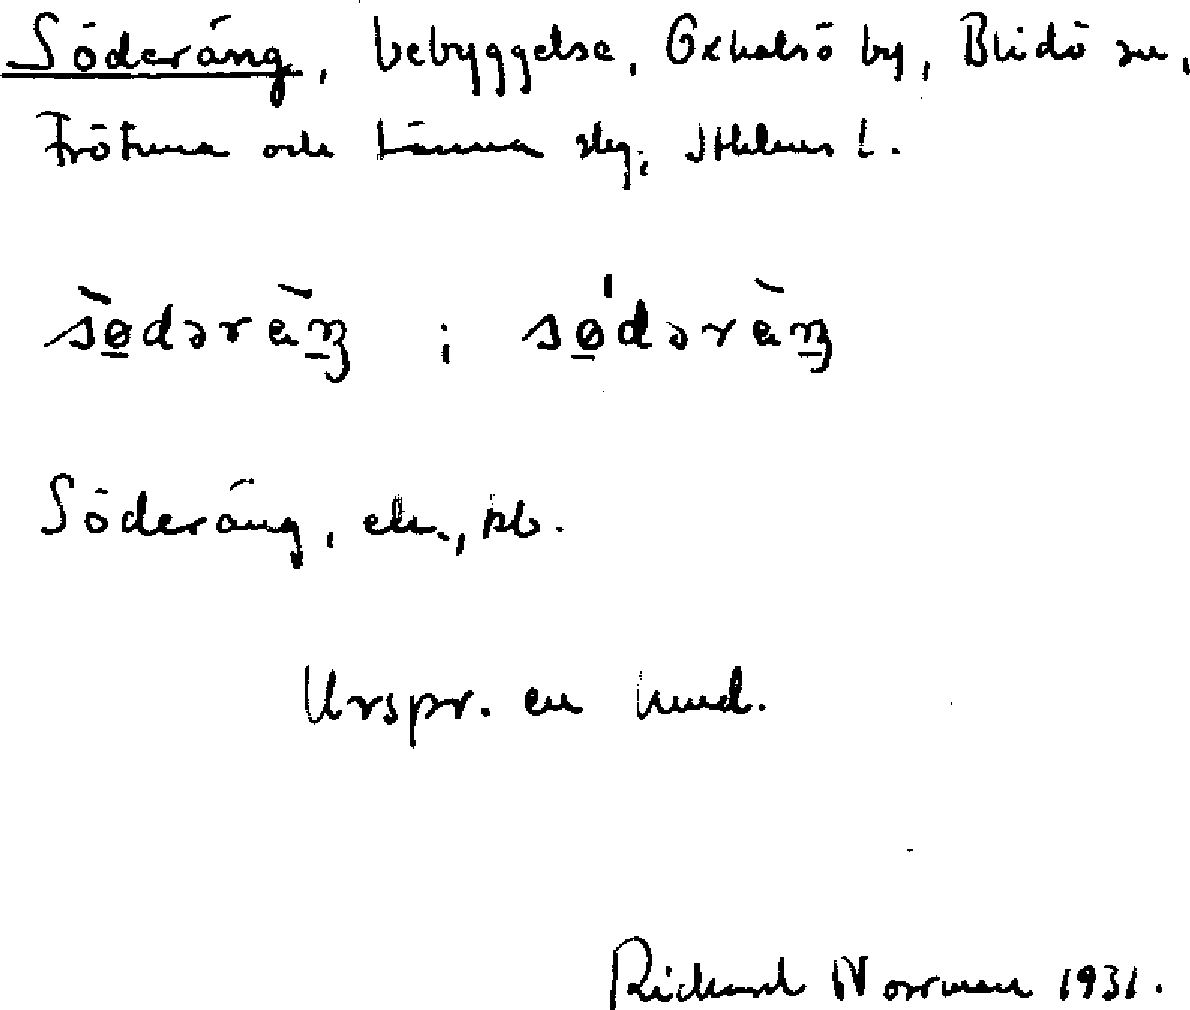 Söderäng, bebyggelse, Oxhalsö by, Blidö sn,
Frötuna och Länna slg, Sthlms l.
sø̀dəræ̀ŋ ; sø'dəræ̀ŋ
Söderäng, ek., kb.
Urspr. en hmd.
Rickard Norrman 1931.